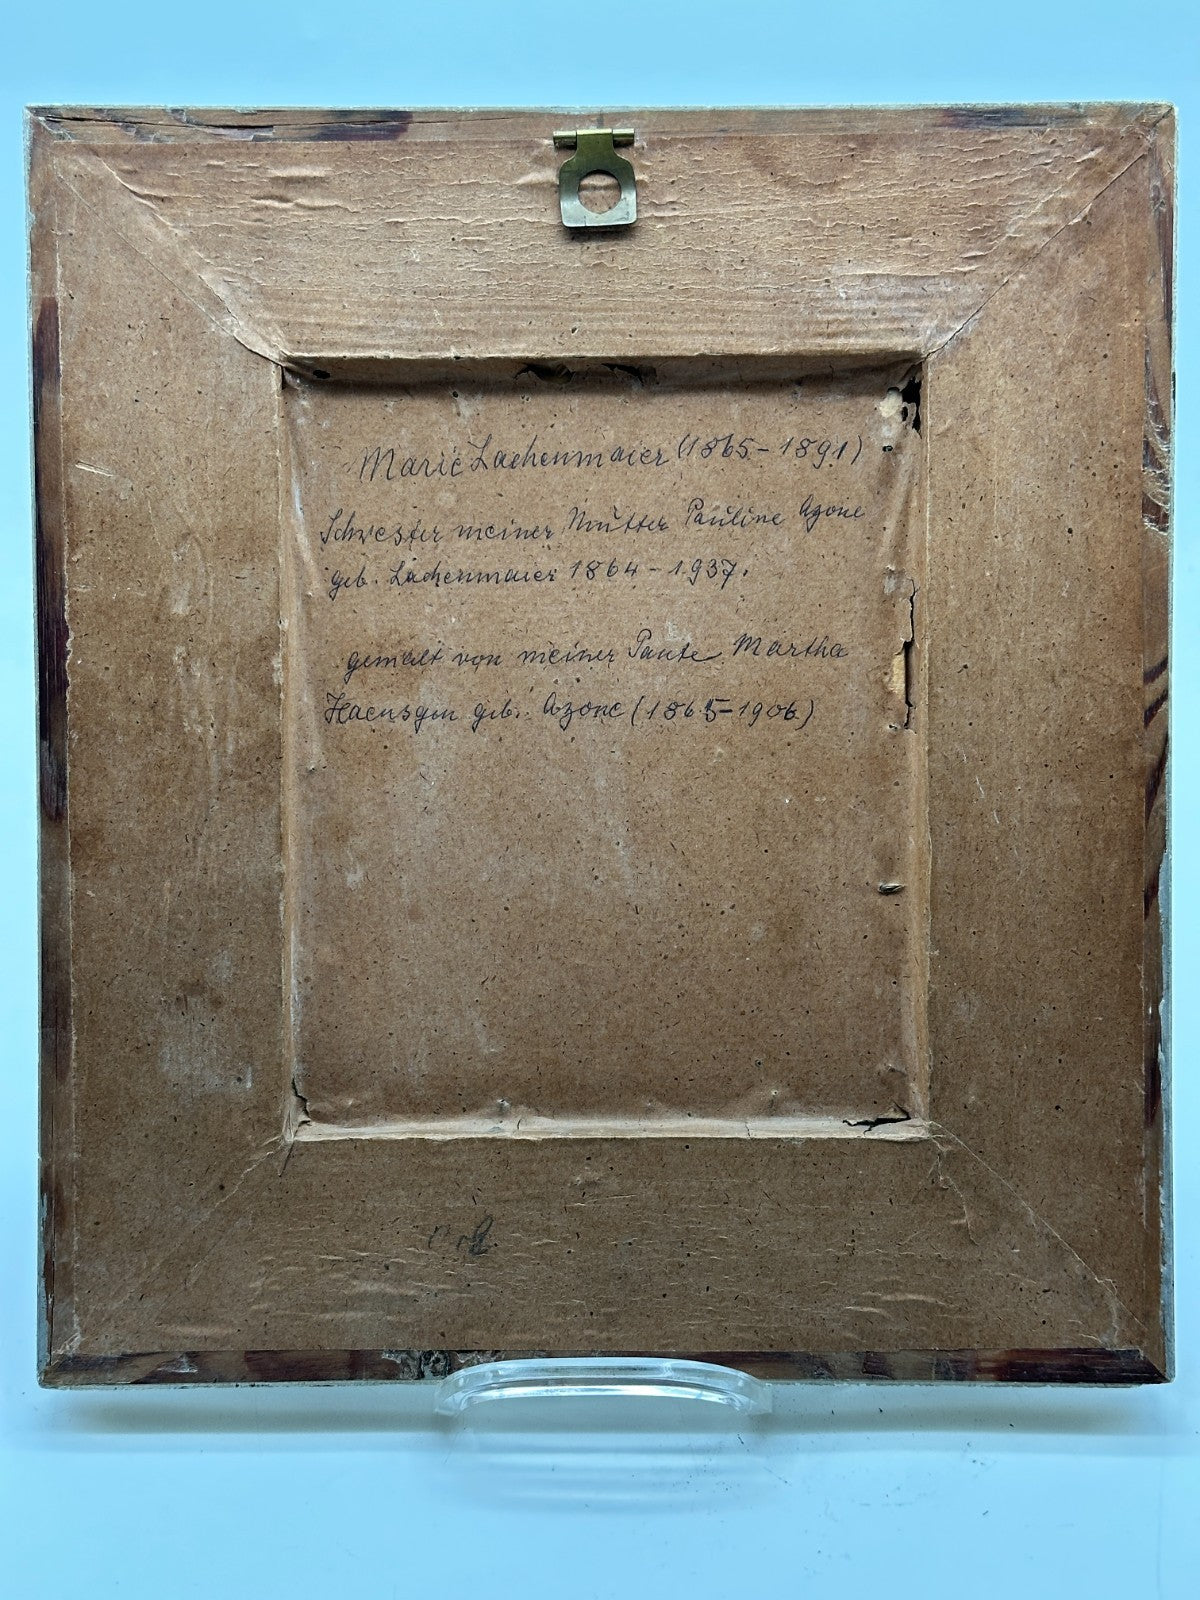 Marie Lachenmaier (1865-1891)
Schwester meiner Mutter Pauline Azone
geb. Lachenmaier 1864-1937.
gemalt von meiner Tante Martha
Haensgen geb. Azone (1865-1906)